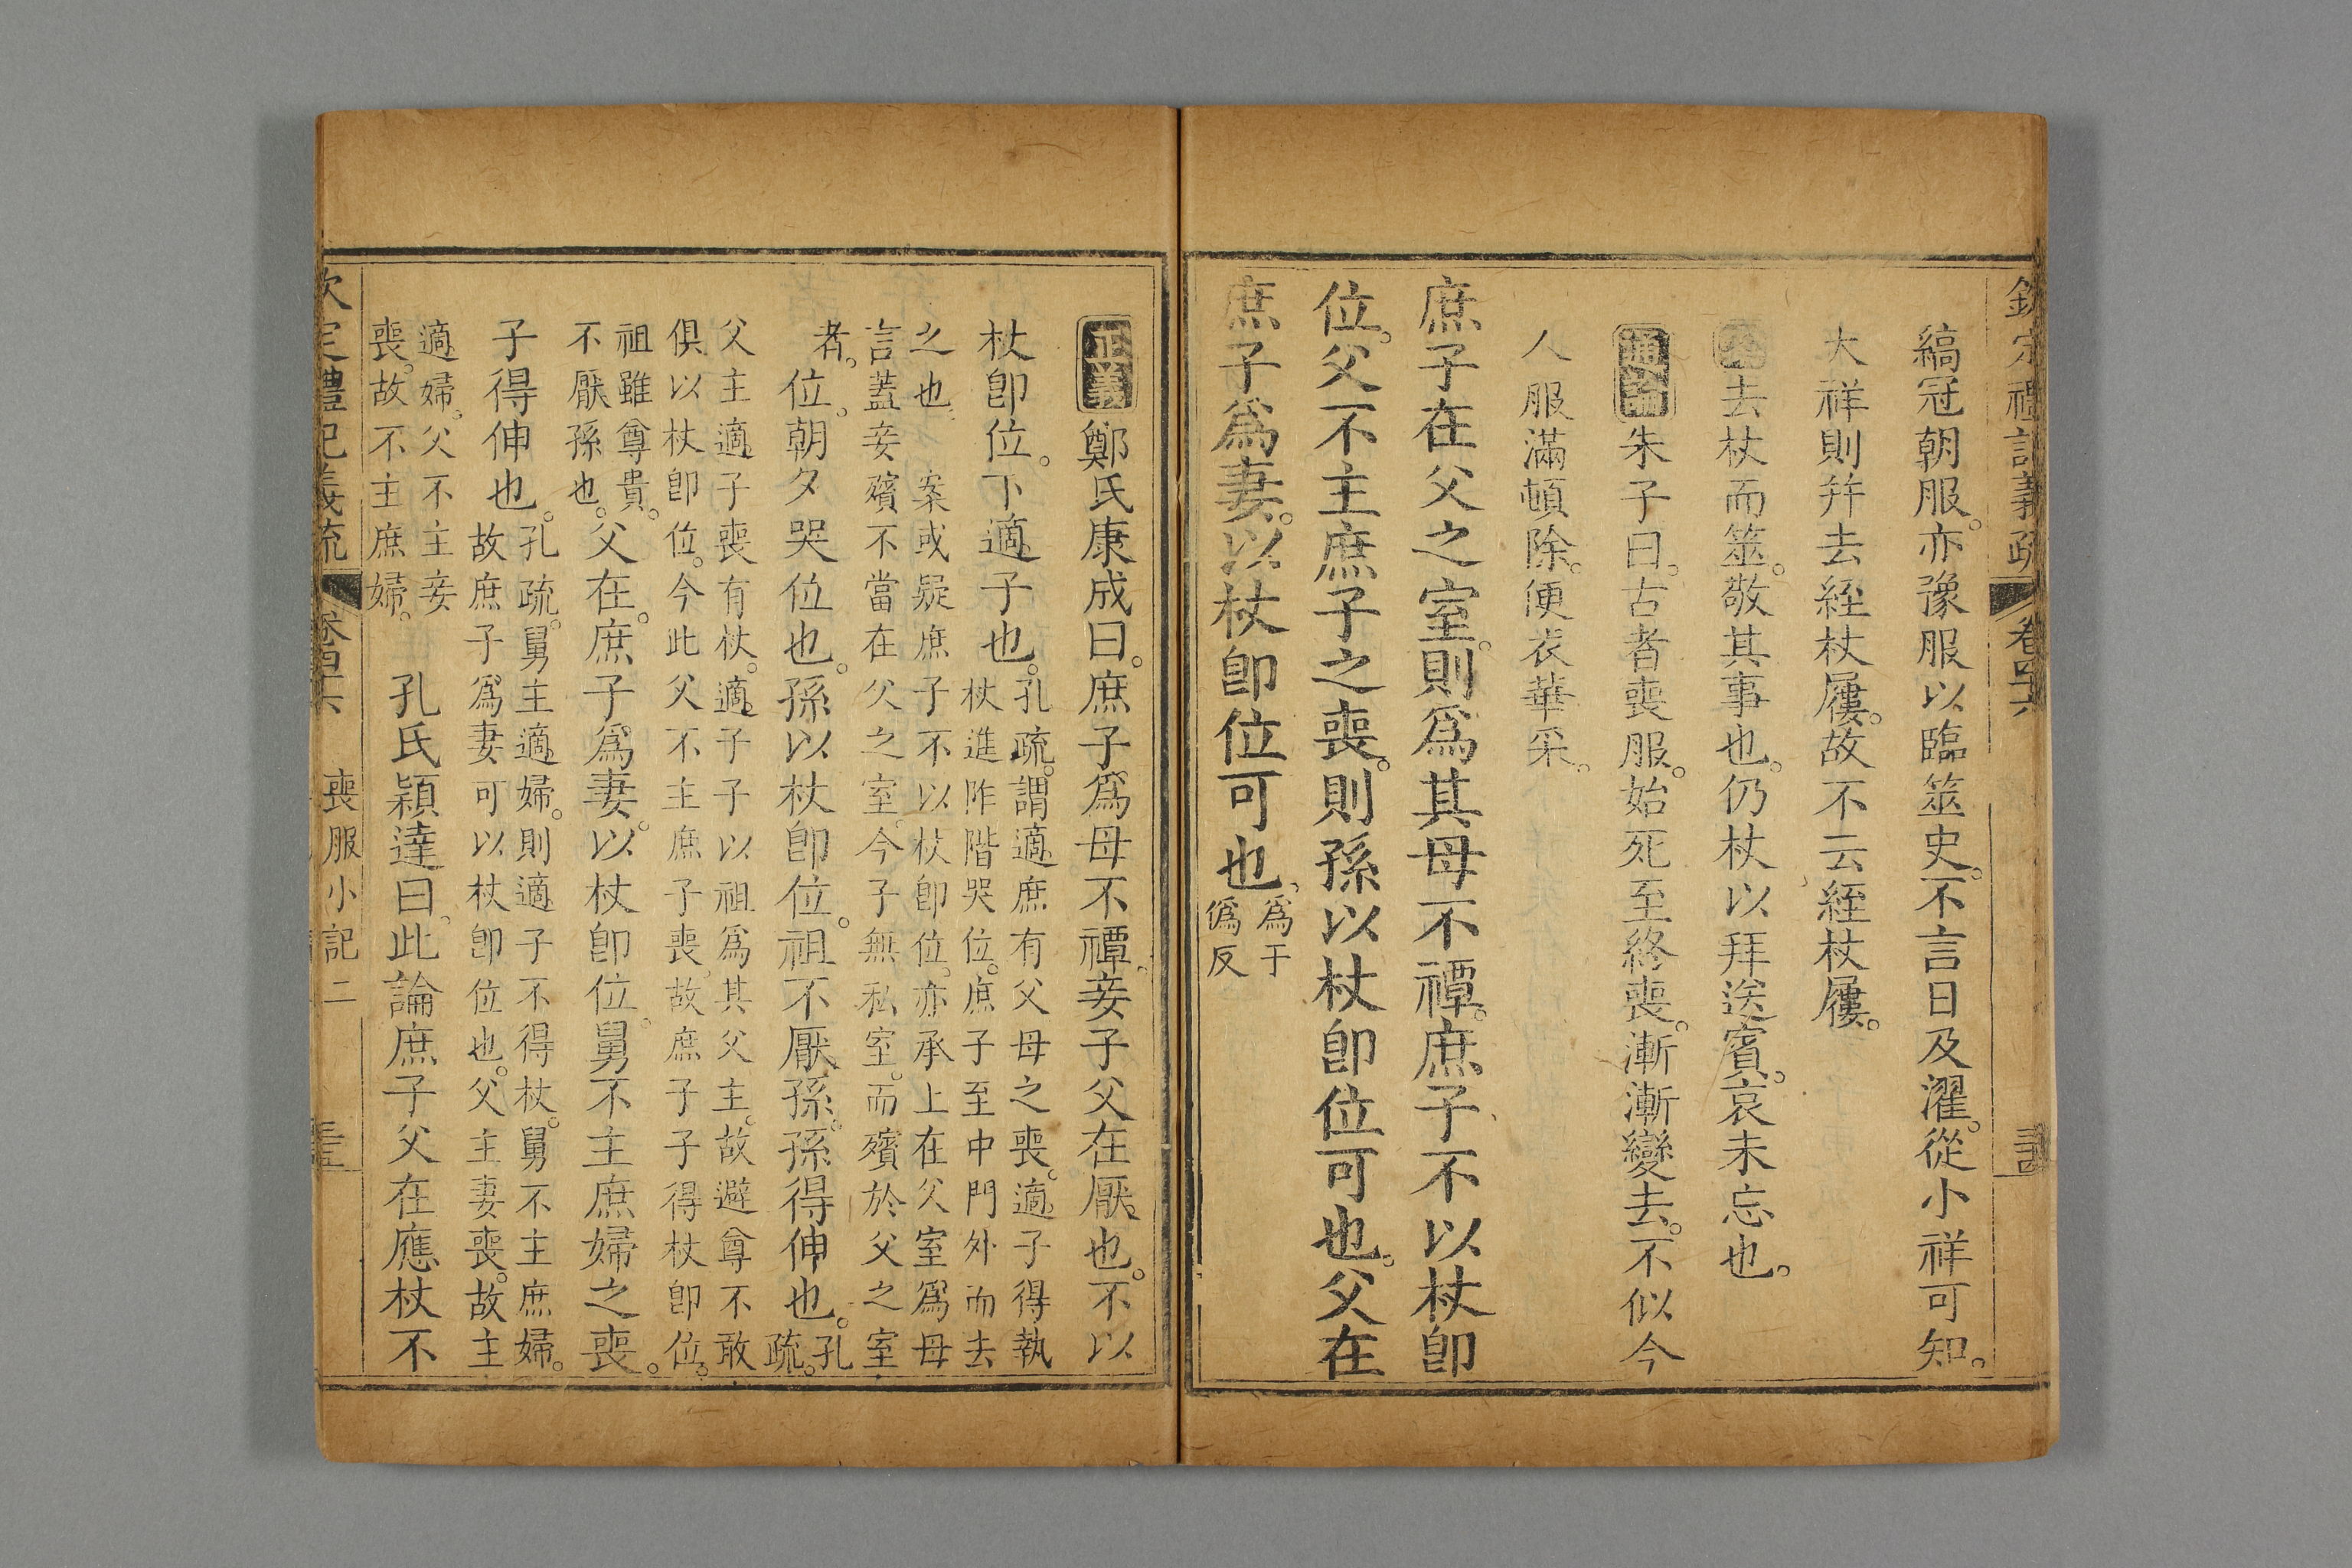 欽定禮記義疏 卷四十六
縞冠朝服。亦豫服以臨筮史。不言日及濯。從小祥可知。
大祥則幷去絰杖屨。故不云絰杖屨。
去杖而筮。敬其事也。仍杖以拜送賓。哀未忘也。
通論朱子曰。古者喪服。始死至終喪。漸漸變去。不似今
人服滿頓除。便衣華采。
庶子在父之室。則爲其母不禫。庶子不以杖卽
位。父不主庶子之喪。則孫以杖卽位可也。父在
庶子爲妻。以杖卽位可也。
爲于
僞反
正義鄭氏康成曰。庶子爲母不禫。妾子父在厭也。不以
杖卽位。下適子也。
孔疏。謂適庶有父母之喪。適子得執
杖進阼階哭位。庶子至中門外而去
之也。案或疑庶子不以杖卽位。亦承上在父室爲母
言蓋妾殯不當在父之室。今子無私室。而殯於父之室
者。
位。朝夕哭位也。孫以杖卽位。祖不厭孫。孫得伸也。
孔
疏。
父主適子喪有杖。適子子以祖爲其父主。故避尊不敢
俱以杖卽位。今此父不主庶子喪。故庶子子得杖卽位。
祖雖尊貴。
不厭孫也。
父在。庶子爲妻。以杖卽位。舅不主庶婦之喪。
子得伸也。
孔疏。舅主適婦。則適子不得杖。舅不主庶婦。
故庶子爲妻可以杖卽位也。父主妻喪。故主
適婦。父不主妾
喪。故不主庶婦。
孔氏穎達曰。此論庶子父在應杖不
欽定禮記義疏 卷四十六 喪服小記二